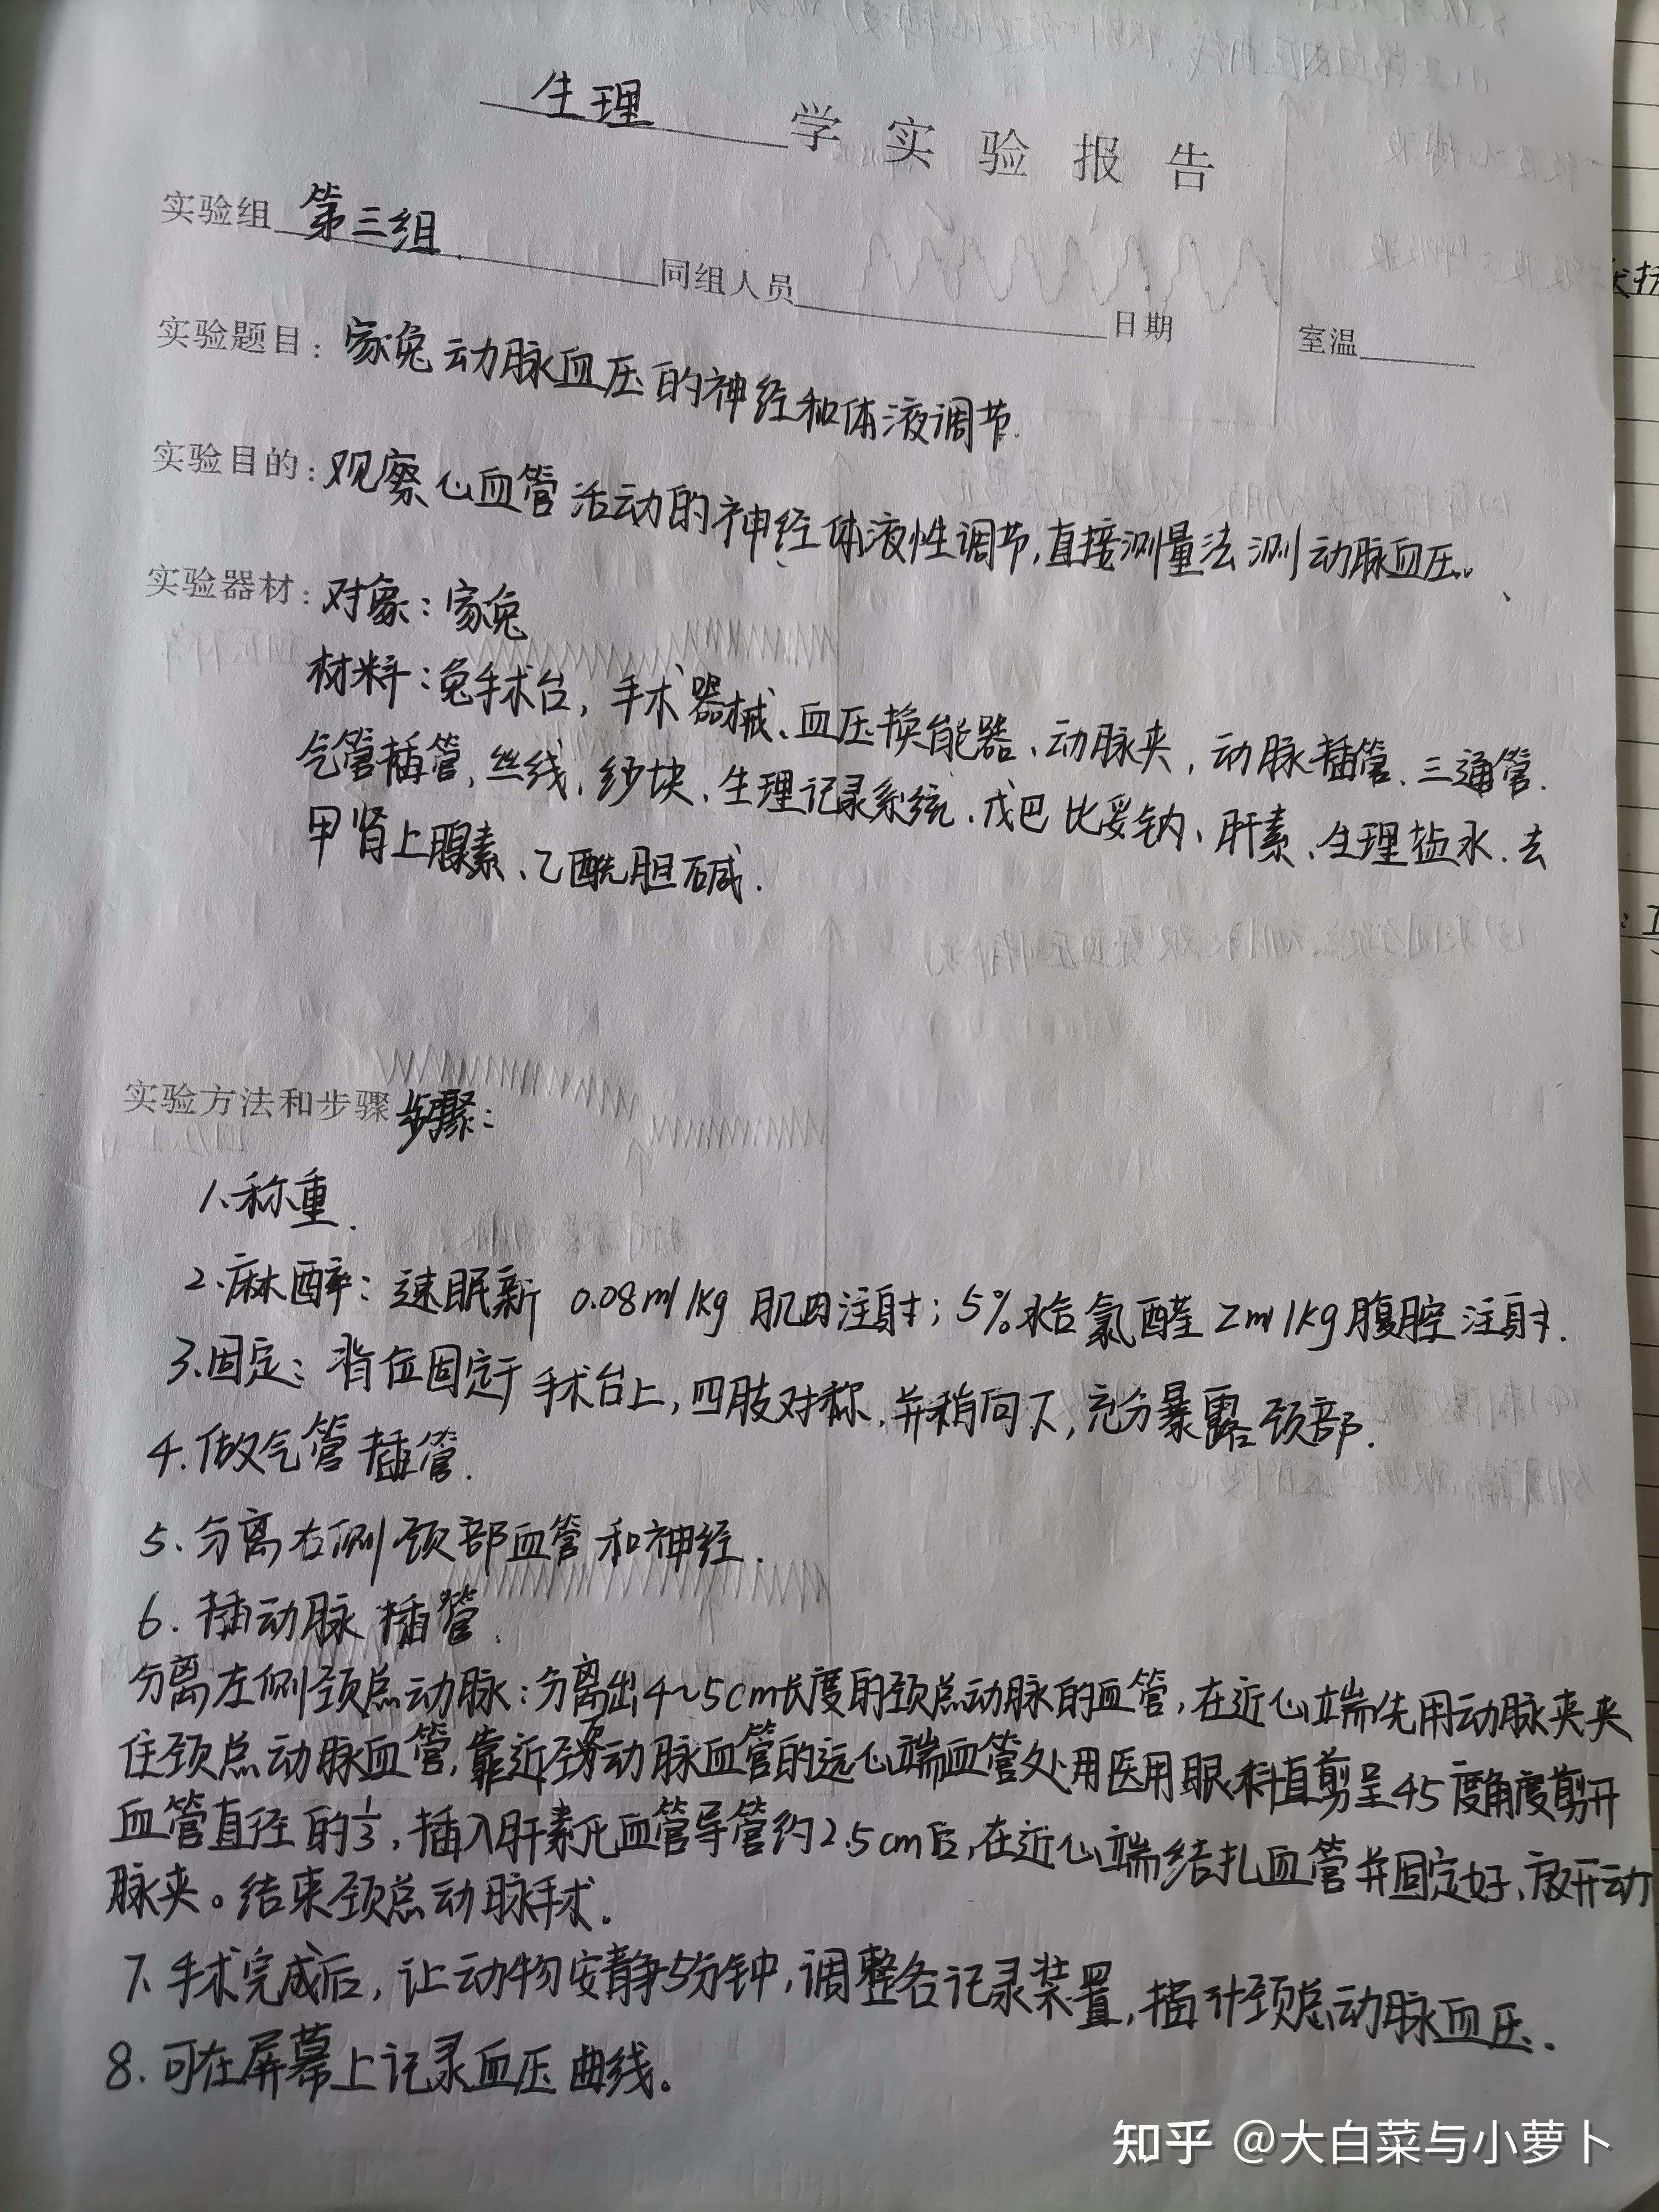 生理学实验报告
实验组 第三组. 同组人员 日期 室温
实验题目: 家兔动脉血压的神经和体液调节.
实验目的: 观察心血管活动的神经体液性调节,直接测量法测动脉血压.
实验器材: 对象:家兔
材料:兔手术台,手术器械、血压换能器、动脉夹,动脉插管、三通管.
气管插管,丝线,纱块、生理记录系统、戊巴比妥钠、肝素、生理盐水.去
甲肾上腺素、乙酰胆碱.
实验方法和步骤 步骤:
1.称重.
2.麻醉: 速眠新 0.08ml/kg 肌肉注射; 5%水合氯醛 2ml/kg腹腔注射.
3.固定: 背位固定于手术台上,四肢对称,并稍向下,充分暴露颈部.
4.做气管插管.
5.分离右侧颈部血管和神经.
6.插动脉插管.
分离左侧颈总动脉:分离出4~5cm长度的颈总动脉的血管,在近心端先用动脉夹夹
住颈总动脉血管,靠近颈总动脉血管的远心端血管处用医用眼科直剪呈45度角度剪开
血管直径的1/3,插入肝素化血管导管约2.5cm后,在近心端结扎血管并固定好、放开动
脉夹。结束颈总动脉手术.
7.手术完成后,让动物安静5分钟,调整各记录装置,描计颈总动脉血压.
8.可在屏幕上记录血压曲线。
知乎 @大白菜与小萝卜